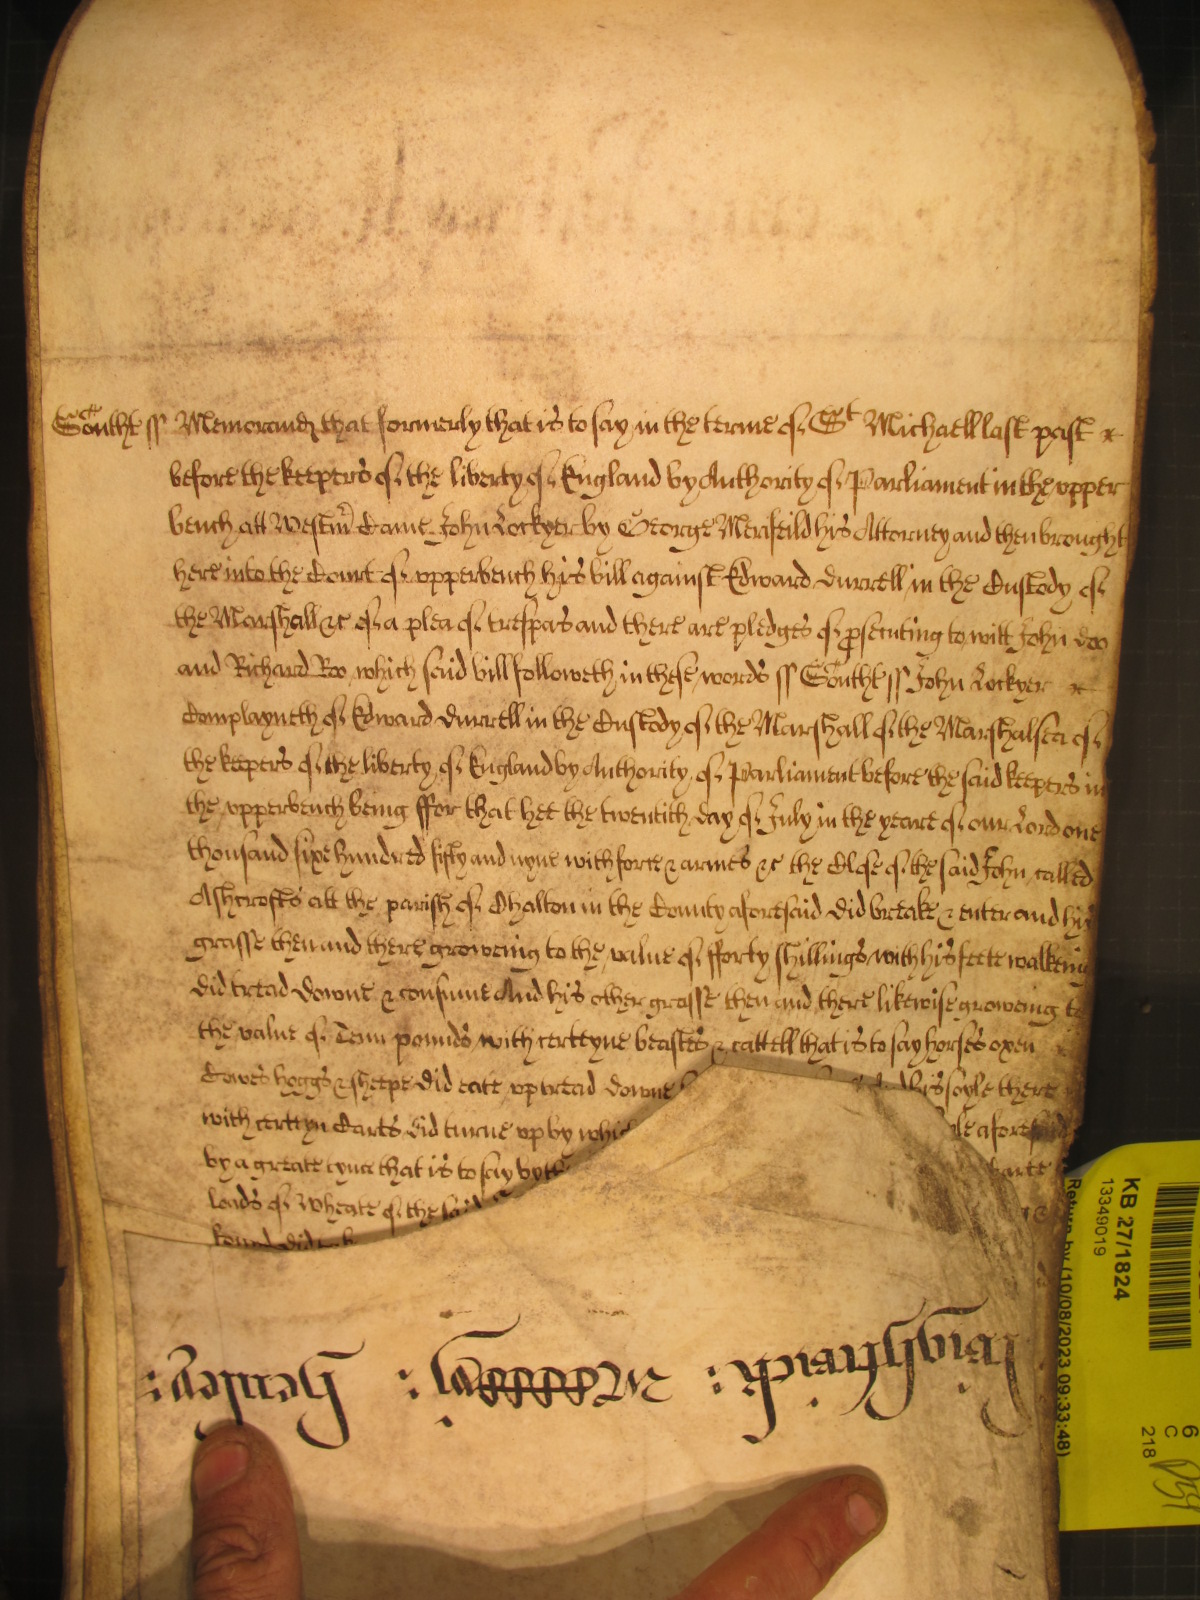 Southt ss Memorand that formerly that is to say in the terme of St Michaell last past
before the keepers of the liberty of England by Authority of Parliament in the vpper
bench att Westmr Came John Lockyer by George Merifeild his Attorney and then brought
here into the Court of vpperbench his bill against Edward Durrell in the Custody of
the Marshall &c of a plea of trespas and there are pledges of psecuting to witt John Doo
and Richard Roo which said bill followeth in these words ss Southt ss John Lockyer
Complayneth of Edward Durrell in the Custody of the Marshall of the Marshalsea of
the keepers of the liberty of England by Authority of Parliament before the said keepers in
the vpperbench being ffor that hee the twentith day of July in the yeare of our Lord one
thousand sixe hundred fifty and nyne with force & armes &c the Close of the said John called
Ashcrofts att the parish of Chalton in the County aforesaid did breake & enter and his
grasse then and there groweing to the value of fforty shillings with his feete walkeing
did tread downe & consume And his other grasse then and there likewise groweing to
the value of Tenn pounds with certeyne beastes & cattell that is to say horses oxen
Cowes hoggs & sheepe did eate vp tread downe his soyle there
with certeyn Carts did turne vp by which
by a greate that is to say carte
loads of wheate of the said
KB 27/1824
13349019
Return by (10/08/2023 09:33:48)
6
C
218
Henley: